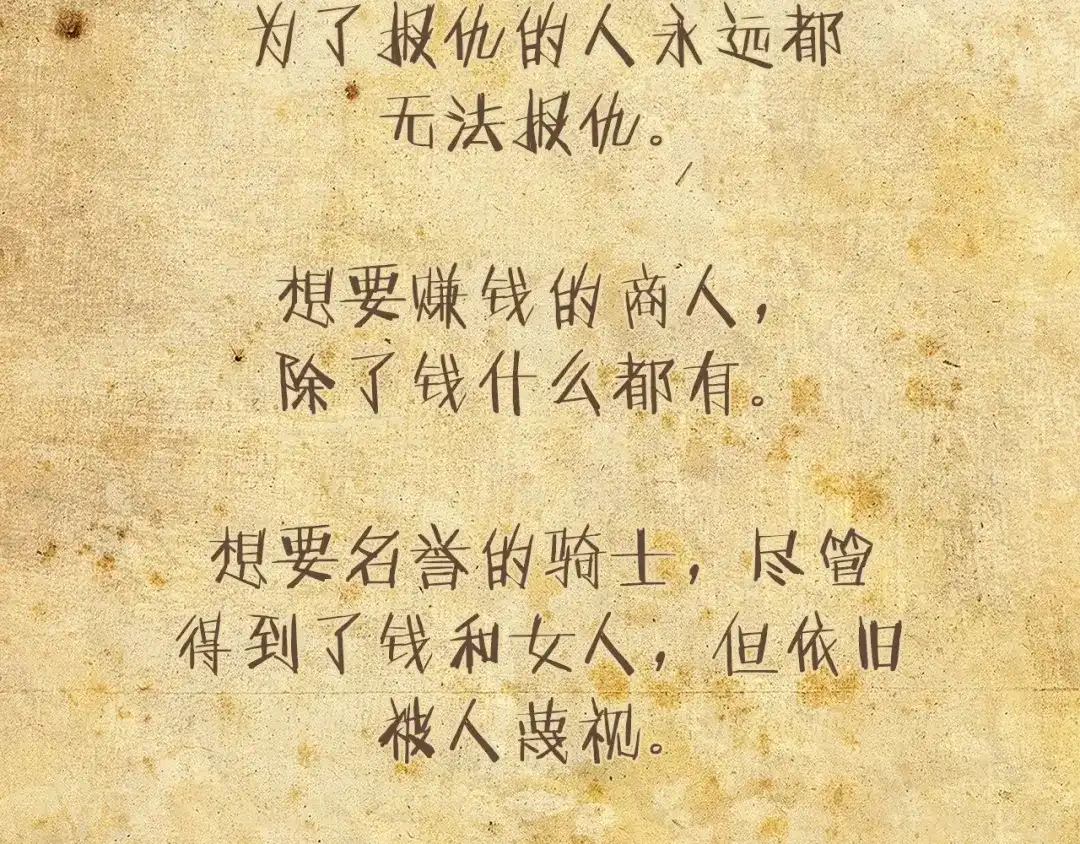 为了报仇的人永远都
无法报仇。
想要赚钱的商人，
除了钱什么都有。
想要名誉的骑士，尽管
得到了钱和女人，但依旧
被人蔑视。